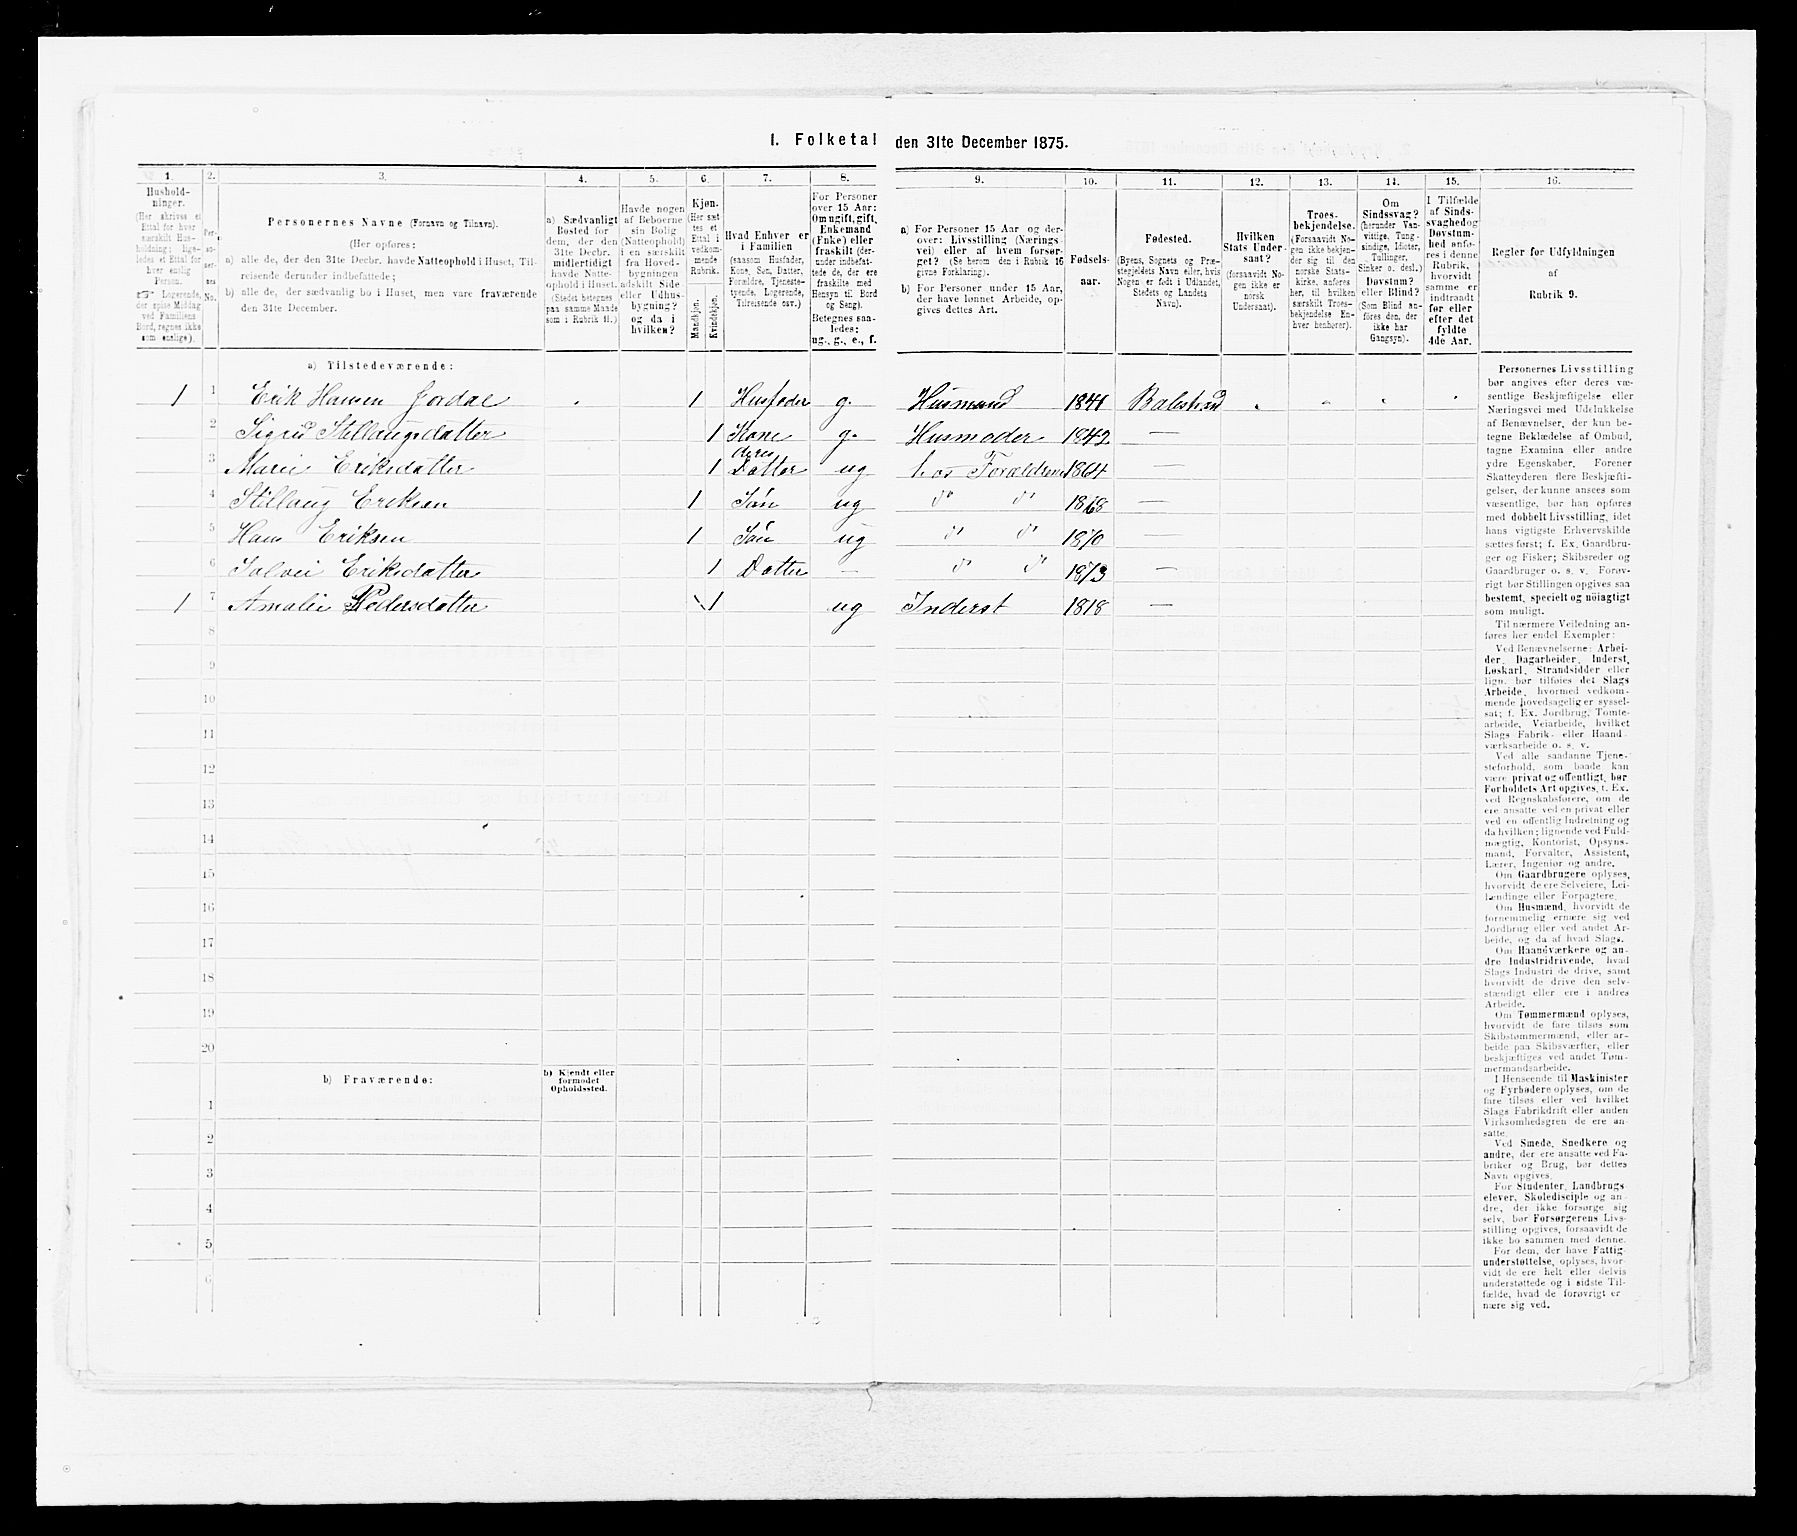 1. Folketal den 31te December 1875.
1. 2. 3. 4. 5. 6. 7. 8. 9. 10. 11. 12. 13. 14. 15. 16.
Husholdninger. (Her skrives et Ettal for hver særskilt Husholdning; ligeledes et Ettal for hver enslig Person. Logerende, der spise Middag ved Familiens Bord, regnes ikke som enslige).
Personernes No.
Personernes Navne (Fornavn og Tilnavn).
(Her opføres:
a) alle de, der den 31te Decbr. havde Natteophold i Huset, Tilreisende derunder indbefattede;
b) alle de, der sædvanlig bo i Huset, men vare fraværende den 31te December.
a) Sædvanligt Bosted for dem, der den 31te Decbr. midlertidigt havde Natteophold i Huset. (Stedet betegnes paa samme Maade som i Rubrik 11.)
Havde nogen af Beboerne sin Bolig (Natteophold) i en særskilt fra Hovedbygningen adskilt Side- eller Udhusbygning? og da i hvilken?
Kjøn. (Her sættes et Ettal i vedkommende Rubrik.
Mandkjøn. Kvindekjøn.
Hvad Enhver er i Familien (saasom Husfader, Kone, Søn, Datter, Forældre, Tjenestetyende, Logerende, Tilreisende osv.)
For Personer over 15 Aar: Om ugift, gift, Enkemand (Enke) eller fraskilt (derunder indbefattede de, der ere fraskilte med Hensyn til Bord og Seng). Betegnes saaledes: ug., g., e., f.
a) For Personer 15 Aar og derover: Livsstilling (Næringsvei) eller af hvem forsørget? (Se herom den i Rubrik 16 givne Forklaring).
b) For Personer under 15 Aar, der have lønnet Arbeide, opgives dettes Art.
Fødselsaar.
Fødested. (Byens, Sognets og Præstegjeldets Navn eller, hvis Nogen er født i Udlandet, Stedets og Landets Navn).
Hvilken Stats Undersaat? (forsaavidt Nogen ikke er norsk Undersaat).
Troesbekjendelse. (Forsaavidt Nogen ikke bekjender sig til den norske Statskirke, anføres her, til hvilken særskilt Troesbekjendelse Enhver henhører).
Om Sindssvag? (herunder Vanvittige, Tungsindige, Idioter, Tullinger, Sinker o. desl.) Døvstum? eller Blind? (Som Blind anføres den, der ikke har Gangsyn).
I Tilfælde af Sindssvaghed og Døvstumhed anføres i denne Rubrik, hvorvidt samme er indtraadt før eller efter det fyldte 4de Aar.
Regler før Udfyldningen af Rubrik 9.
a) Tilstedeværende:
1 1 Erik Hansen Jordal 1 Husfader g. Husmand 1841 Balestrand
2 Sigrid Stillaugsdatter 1 Kone g. Husmoder 1842 —
deres
3 Marie Eriksdatter 1 Datter ug hos Forældrene 1864 —
4 Stillaug Eriksen 1 Søn ug d° d° 1868 —
5 Hans Eriksen 1 Søn ug d° d° 1870 —
6 Solvei Eriksdatter 1 Datter — d° d° 1873 —
1 7 Amalie Pedersdatter 1 ug Inderst 1818 —
8
9
10
11
12
13
14
15
16
17
18
19
20
b) Fraværende: b) Kjendt eller formodet Opholdssted.
1
2
3
4
5
6
Personernes Livsstilling
bør angives efter deres væ-
sentlige Beskjæftigelse eller
Næringsvei med Udelukkelse
af Benævnelser, der kun be-
tegne Beklædelse af Ombud,
tagne Examina eller andre
ydre Egenskaber. Forener
Skatteyderen flere Beskjæfti-
gelser, der kunne ansees som
væsentlige, bør han opføres
med dobbelt Livsstilling, idet
hans vigtigste Erhvervskilde
sættes først; f. Ex. Gaardbru-
ger og Fisker; Skibsreder og
Gaardbruger o. s. v. Forøv-
rigt bør Stillingen opgives saa
bestemt, specielt og nöiagtigt
som muligt.
Til nærmere Veiledning an-
føres her endel Exempler:
Ved Benævnelserne: Arbei-
der, Dagarbeider, Inderst,
Løskarl, Strandsidder eller
lign. bør tilføies det Slags
Arbeide, hvormed vedkom-
mende hovedsagelig er syssel-
sat; f. Ex. Jordbrug, Tomte-
arbeide, Veiarbeide, hvilket
Slags Fabrik- eller Haand-
værksarbeide o. s. v.
Ved alle saadanne Tjene-
steforhold, som baade kan
være privat og offentligt, bør
Forholdets Art opgives, f. Ex.
ved Regnskabsførere, om de
ere ansatte ved en privat eller
ved en offentlig Indretning og
da hvilken; lignende ved Fuld-
mægtig, Kontorist, Opsyns-
mand, Forvalter, Assistent,
Lærer, Ingeniør og andre.
Om Gaardbrugere oplyses,
hvorvidt de ere Selveiere, Lei-
lændinge eller Forpagtere.
Om Husmænd, hvorvidt de
fornemmelig ernære sig ved
Jordbrug eller ved andet Ar-
beide, og da af hvad Slags.
Om Haandværkere og an-
dre Industridrivende, hvad
Slags Industri de drive, samt
hvorvidt de drive den selv-
stændigt eller ere i andres
Arbeide.
Om Tømmermænd oplyses,
hvorvidt de fare tilsøs som
Skibstømmermænd, eller ar-
beide paa Skibsværfter, eller
beskjæftiges ved andet Tøm-
mermandsarbeide.
I Henseende til Maskinister
og Fyrbødere oplyses, om de
fare tilsøs eller ved hvilket
Slags Fabrikdrift eller anden
Virksomhedsgren de ere an-
satte.
Ved Smede, Snedkere og
andre, der ere ansatte ved Fa-
briker og Brug, bør dettes
Navn opgives.
For Studenter, Landbrugs-
elever, Skoledisciple og an-
dre, der ikke forsørge sig
selv, bør Forsørgerens Livs-
stilling opgives, forsaavidt de
ikke bo sammen med denne.
For dem, der have Fattig-
understøttelse, oplyses, hvor-
vidt de ere helt eller delvis
understøttede og i sidste Til-
fælde, hvad de forøvrigt er-
nære sig ved.